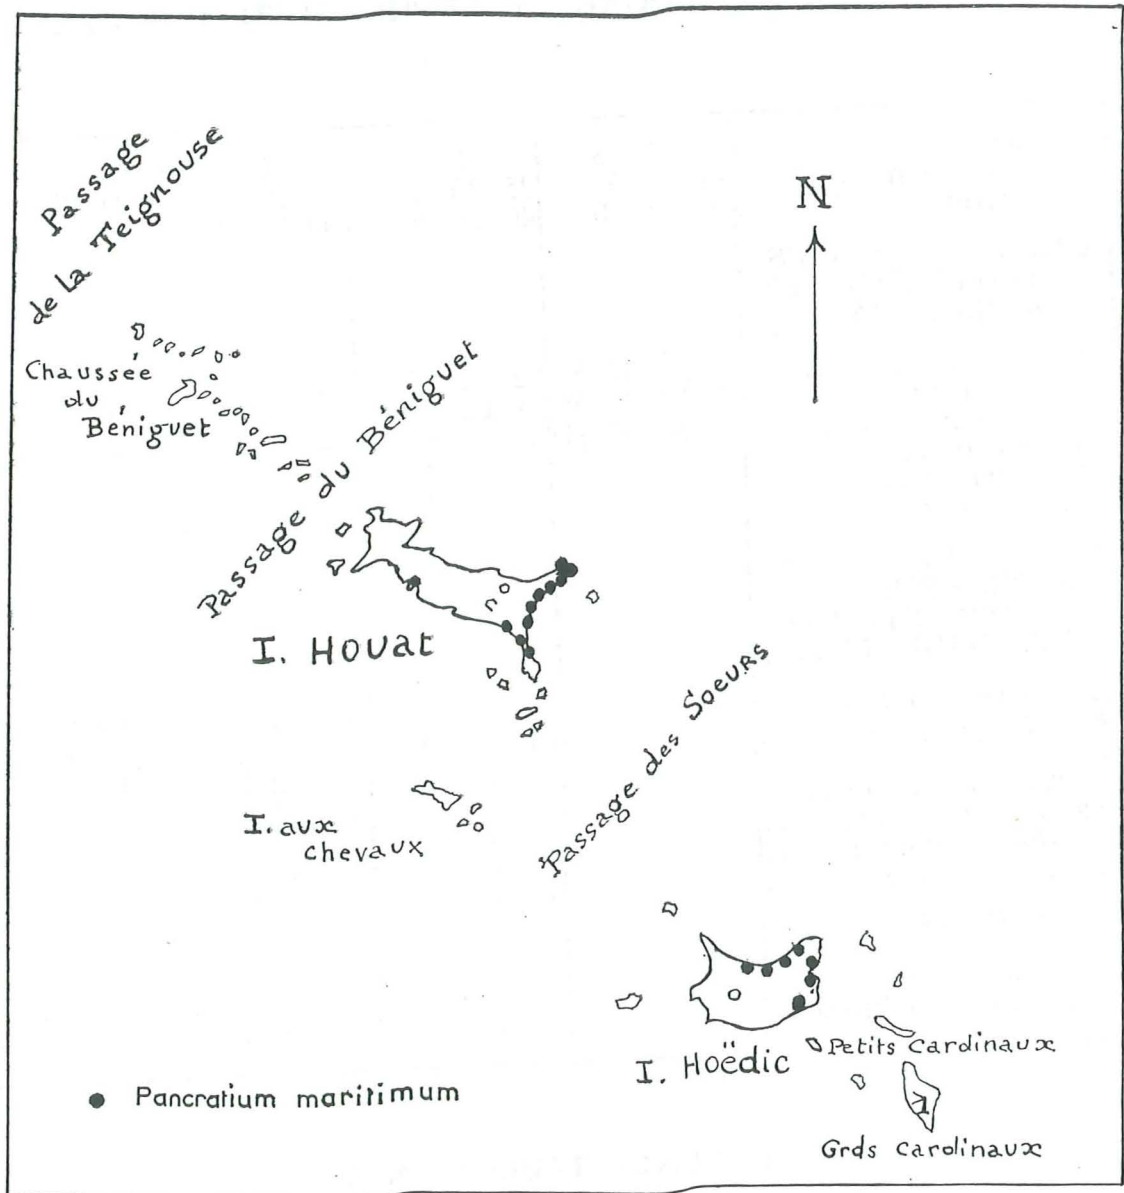 Passage
de la Teignouse
N
Chaussée
du
Béniguet
Passage du Béniguet
I. Houat
Passage des Soeurs
I. aux
chevaux
I. Hoëdic
Petits Cardinaux
Grds Cardinaux
Pancratium maritimum